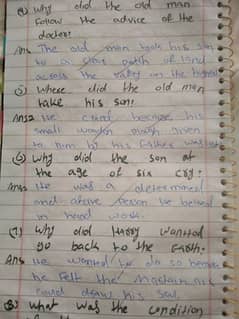 (4) Why did the old man
follow the advice of the
doctor?
Ans The old man took his son
to a patch of land
across the valley on the
(5) Where did the old man
take his son?
Ans2 He cried because his
small wooden plough given
to him by his father was lost
(6) Why did the son at
the age of six cry?
Ans He was a determined
and person He believed
in hard work.
(7) Why did Harry wanted
go back to the Earth?
Ans He wanted to do so because
he felt the Martain air
could his
(8) What was the condition